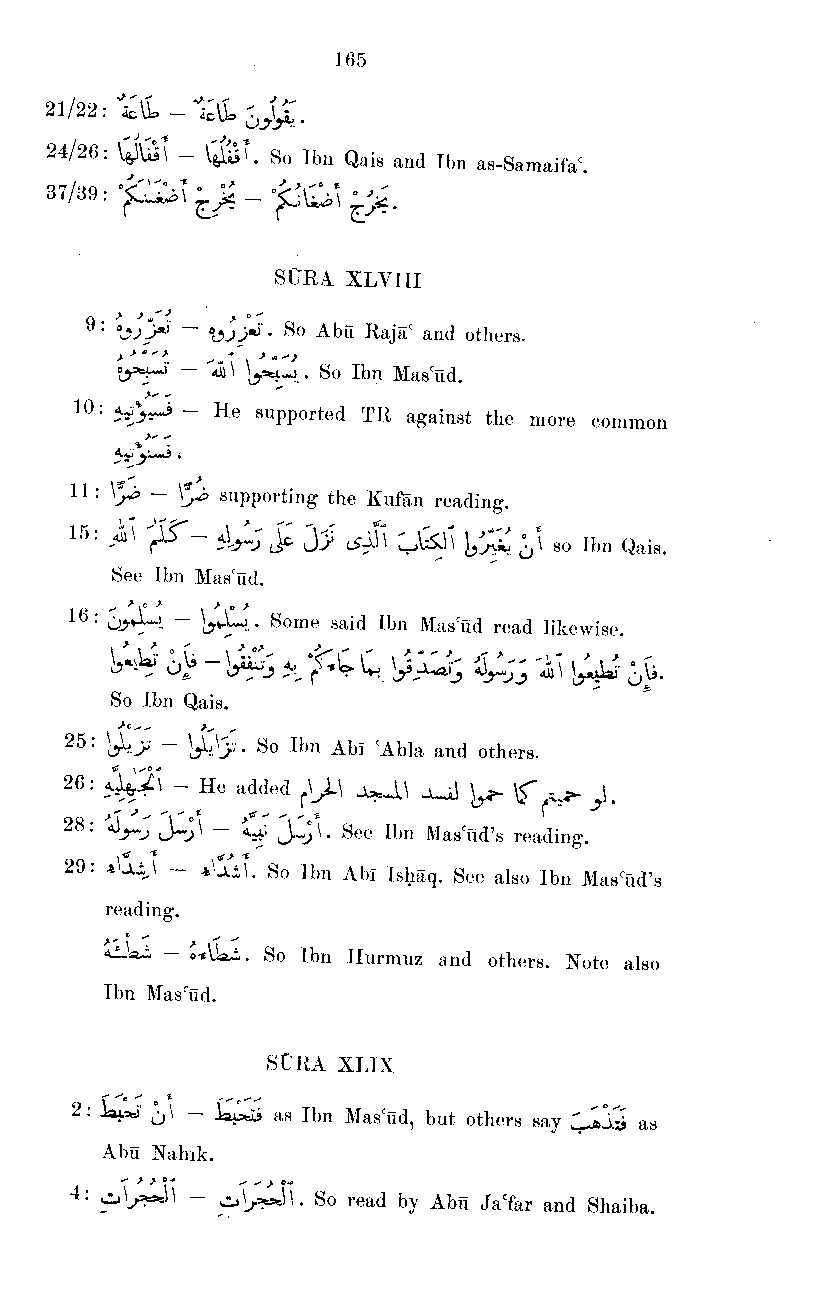 165
21/22: طَاعَةٌ – يَقُولُونَ طَاعَةٌ.
24/26: أَقْفَالُهَا – أَقْفُلُهَا. So Ibn Qais and Ibn as-Samaifaʿ.
37/39: يُخْرِجْ أَضْغَـٰنَكُمْ – يَخْرُجْ أَضْغَانُكُمْ.
SŪRA XLVIII
9: تُعَزِّرُوهُ – تَعْزُرُوهِ. So Abū Rajāʿ and others.
تُسَبِّحُوهُ – يُسَبِّحُوا اللّٰهَ. So Ibn Masʿūd.
10: فَسَيُؤْتِيهِ – He supported TR against the more common
فَسَنُؤْتِيهِ.
11: ضَرًّا – ضُرًّا supporting the Kufān reading.
15: كَلَـٰمَ ٱللّٰهِ – أَنْ يُغَيِّرُوا ٱلكِتَابَ ٱلَّذِى نَزَلَ عَلَى رَسُولِهِ so Ibn Qais.
See Ibn Masʿūd.
16: يُسْلِمُونَ – يُسْلِمُوا. Some said Ibn Masʿūd read likewise.
فَإِنْ تُطِيعُوا – فَإِنْ تُطِيعُوا ٱللّٰهَ وَرَسُولَهُ وَتُصَدِّقُوا بِمَا جَاءَكُمْ بِهِ وَتُنْفِقُوا.
So Ibn Qais.
25: تَزَيَّلُوا – تَزَايَلُوا. So Ibn Abī ʿAbla and others.
26: ٱلْجَـٰهِلِيَّةِ – He added لو حميتم كما حموا لفسد المسجد الحرام.
28: أَرْسَلَ رَسُولَهُ – أَرْسَلَ نَبِيَّهُ. See Ibn Masʿūd's reading.
29: أَشِدَّاء – أَشُدَّاء. So Ibn Abī Isḥāq. See also Ibn Masʿūd's
reading.
شَطْـَٔهُ – شَطَاءهُ. So Ibn Hurmuz and others. Note also
Ibn Masʿūd.
SŪRA XLIX
2: أَنْ تَحْبَطَ – فَتَحْبَطَ as Ibn Masʿūd, but others say فَتَذْهَبَ as
Abū Nahīk.
4: ٱلْحُجُرَاتِ – ٱلْحُجَرَاتِ. So read by Abū Jaʿfar and Shaiba.